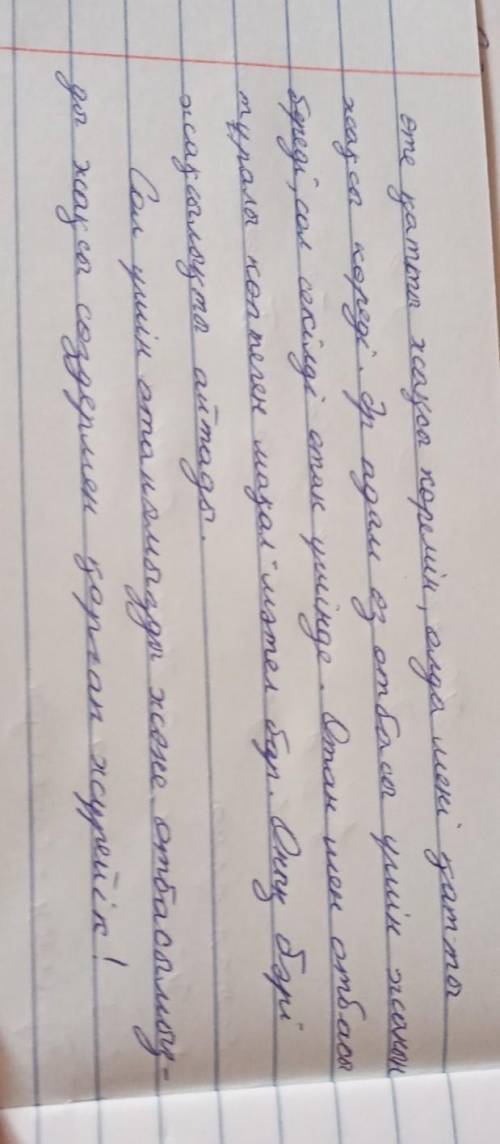 өте қатты жақсы көремін, олда мені қатты
жақсы көреді. Әр адам өз отбасы үшін жанын
береді, сол секілді отан үшінде. Отан мен отбасы
туралы көптеген мақал-мәтел бар. Оның бәрі
жақсылықты айтады.
Сол үшін отанымызды және отбасымыз-
ды жақсы сөздермен қорған жүрейік!